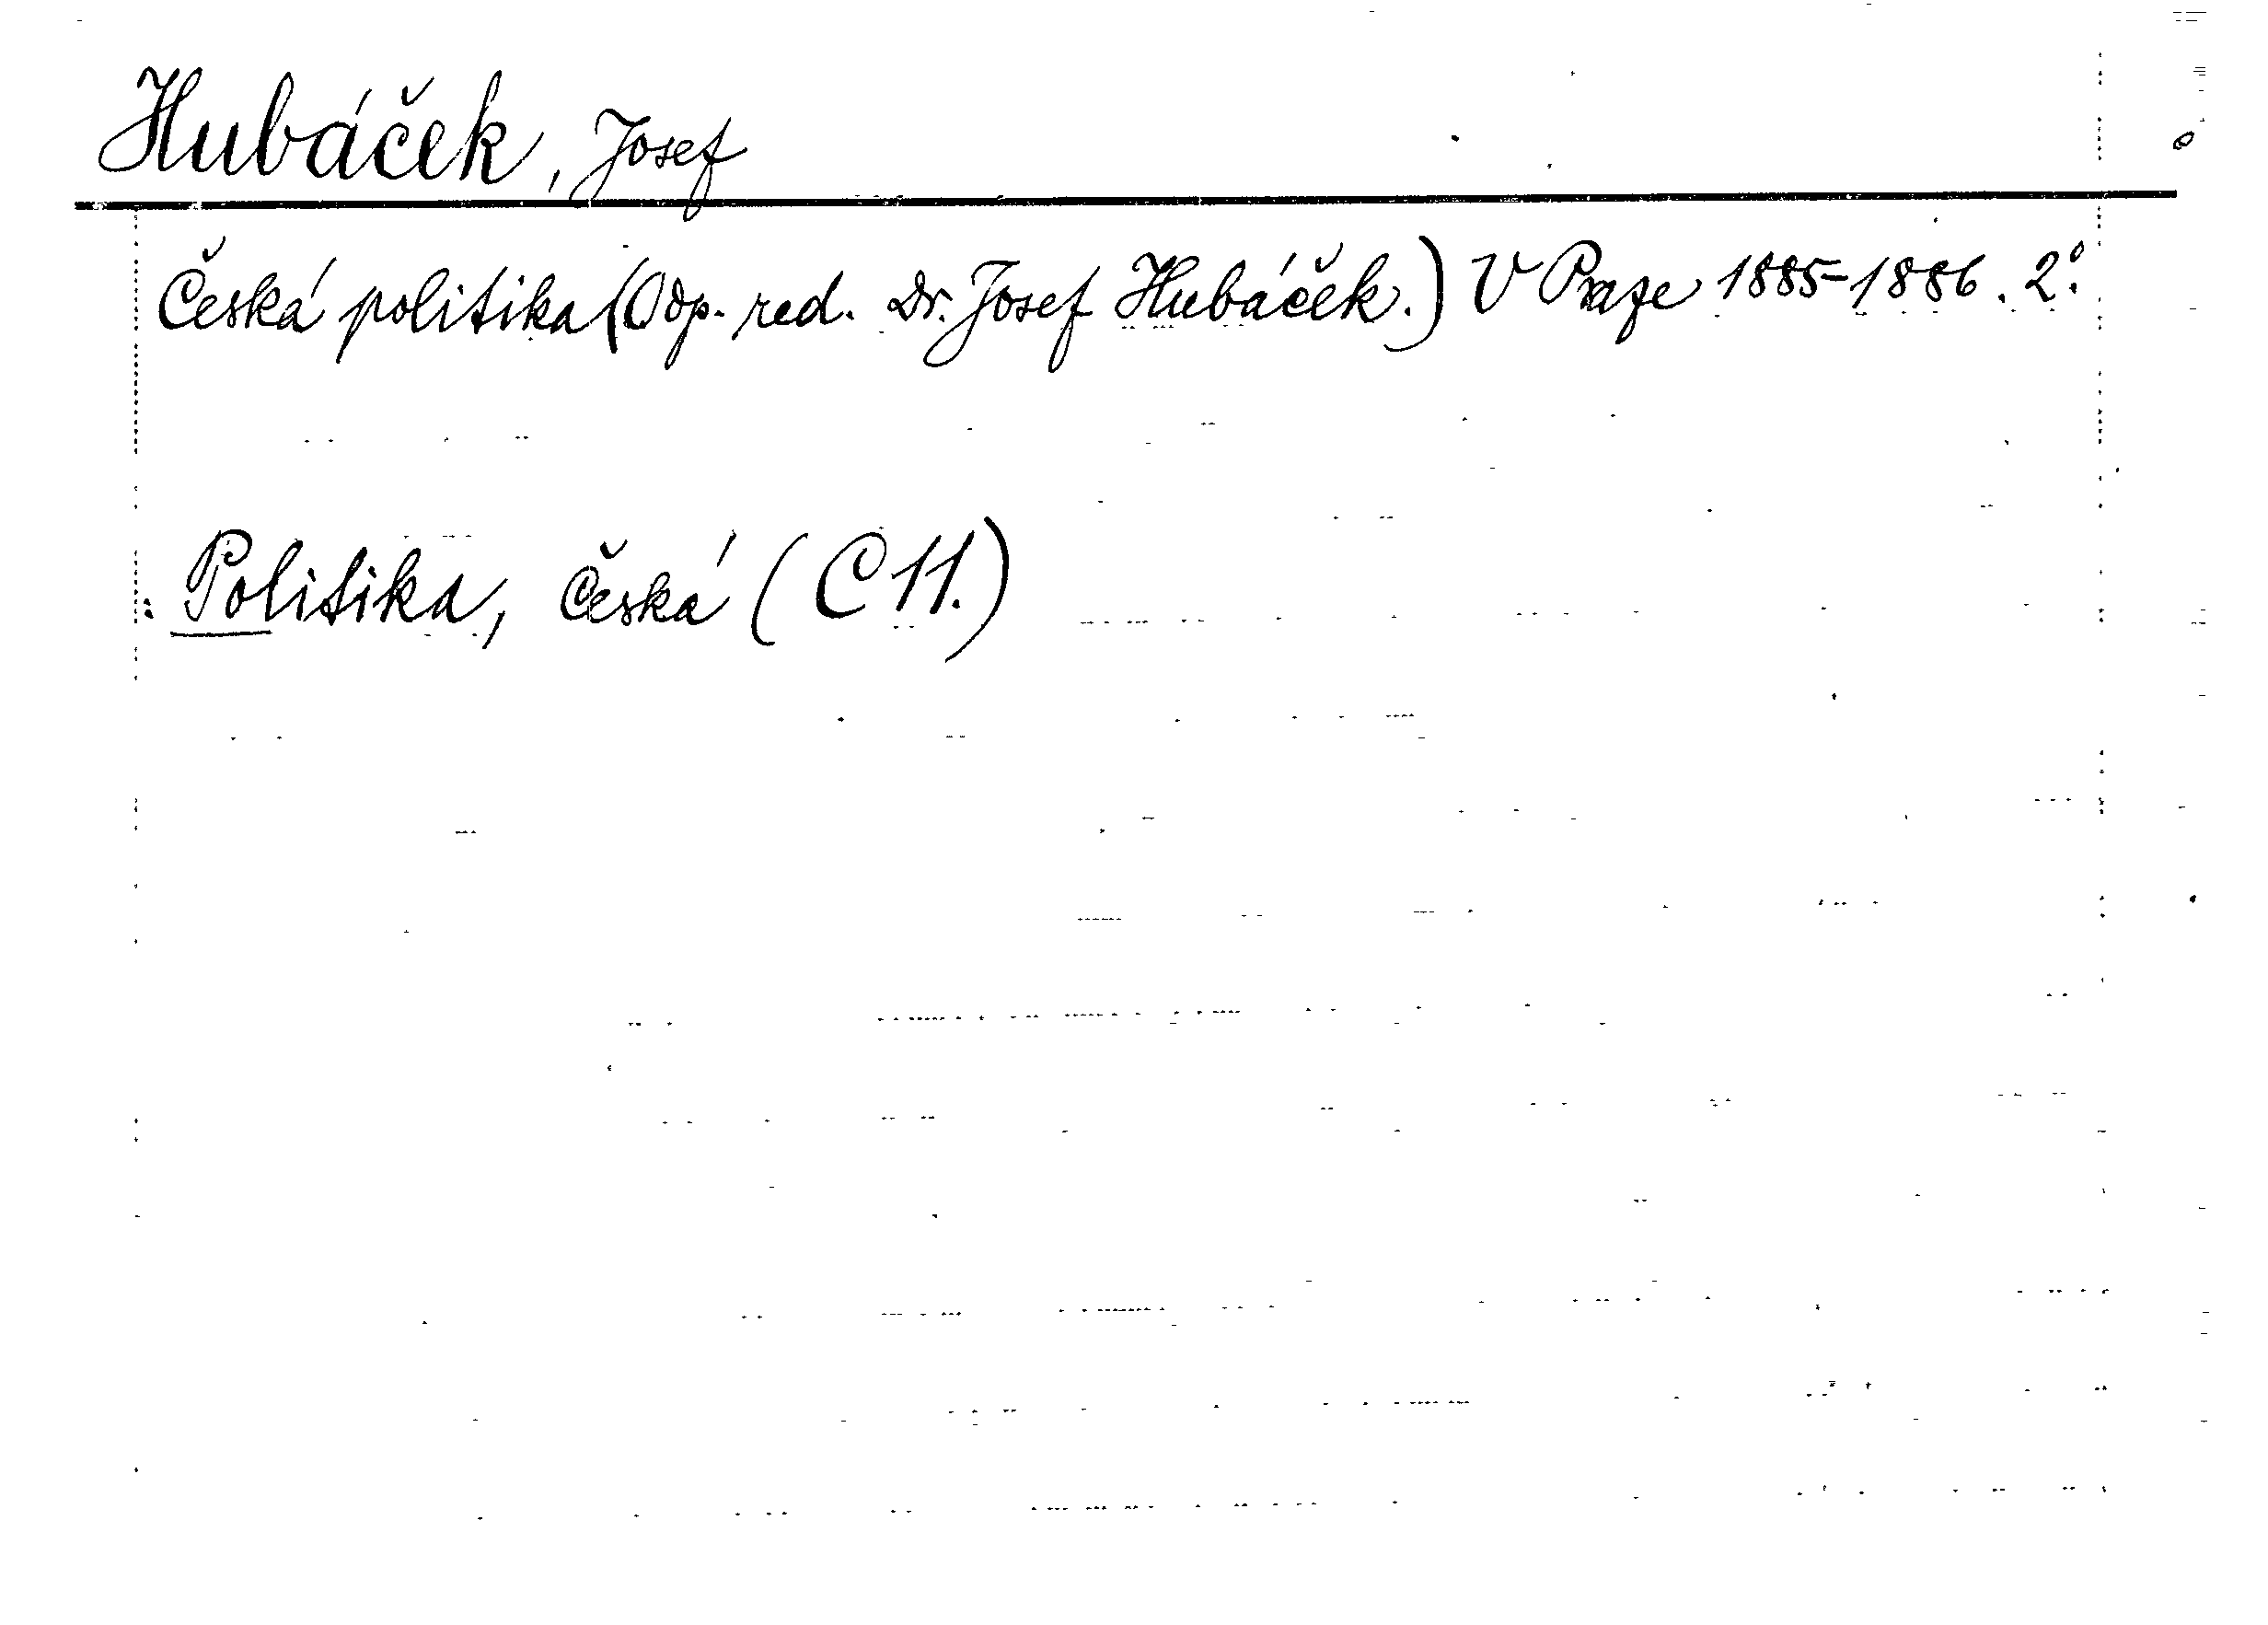 Hubáček, Josef
Česká politika (Odp. red. Dr. Josef Hubáček.) V Praze 1885-1886. 2°.
Politika, Česká (C 11.)